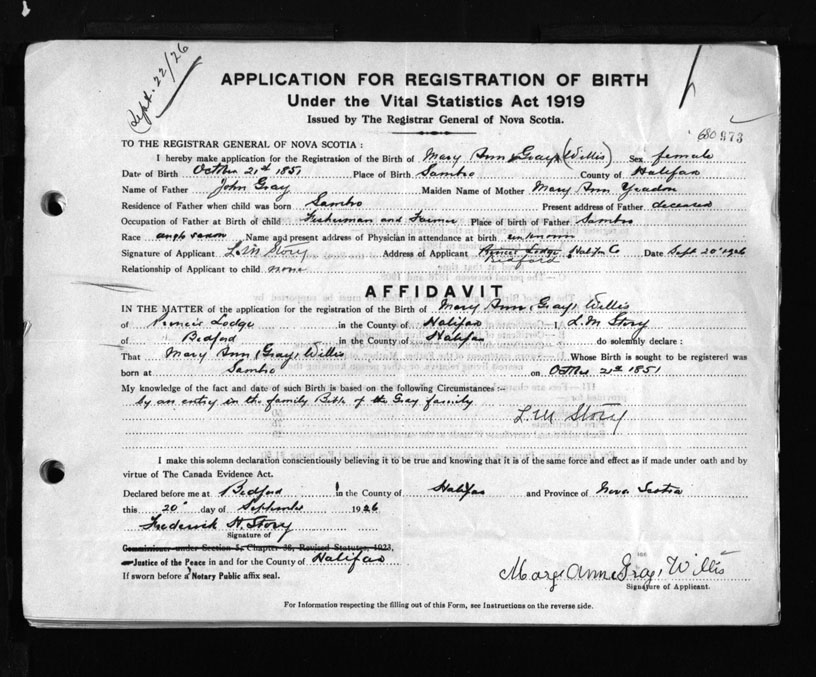 Sept. 22/26
APPLICATION FOR REGISTRATION OF BIRTH
Under the Vital Statistics Act 1919
Issued by The Registrar General of Nova Scotia.
680 973
TO THE REGISTRAR GENERAL OF NOVA SCOTIA :
I hereby make application for the Registration of the Birth of Mary Ann Gray (Willis) Sex female
Date of Birth October 21st 1851 Place of Birth Sambro County of Halifax
Name of Father John Gray Maiden Name of Mother Mary Ann Yeadon
Residence of Father when child was born Sambro Present address of Father deceased
Occupation of Father at Birth of child Fisherman and Farmer Place of birth of Father Sambro
Race anglo saxon Name and present address of Physician in attendance at birth unknown
Signature of Applicant L. M Story Address of Applicant Lodge Halifax Co Date Sept 20 1926
Bedford
Relationship of Applicant to child none
AFFIDAVIT
IN THE MATTER of the application for the registration of the Birth of Mary Ann (Gray) Willis
of Lodge in the County of Halifax I, L. M Story
of Bedford in the County of Halifax do solemnly declare :
That Mary Ann (Gray) Willis Whose Birth is sought to be registered was
born at Sambro on October 21st 1851
My knowledge of the fact and date of such Birth is based on the following Circumstances :—
by an entry in the family Bible of the Gray family
L. M Story
I make this solemn declaration conscientiously believing it to be true and knowing that it is of the same force and effect as if made under oath and by
virtue of The Canada Evidence Act.
Declared before me at Bedford in the County of Halifax and Province of Nova Scotia
this 20 day of September 1926
Frederick H. Story
Signature of
Commissioner under Section 5, Chapter 38, Revised Statutes, 1923,
Justice of the Peace in and for the County of Halifax
If sworn before a Notary Public affix seal.
Mary Ann Gray Willis
Signature of Applicant.
For Information respecting the filling out of this Form, see Instructions on the reverse side.